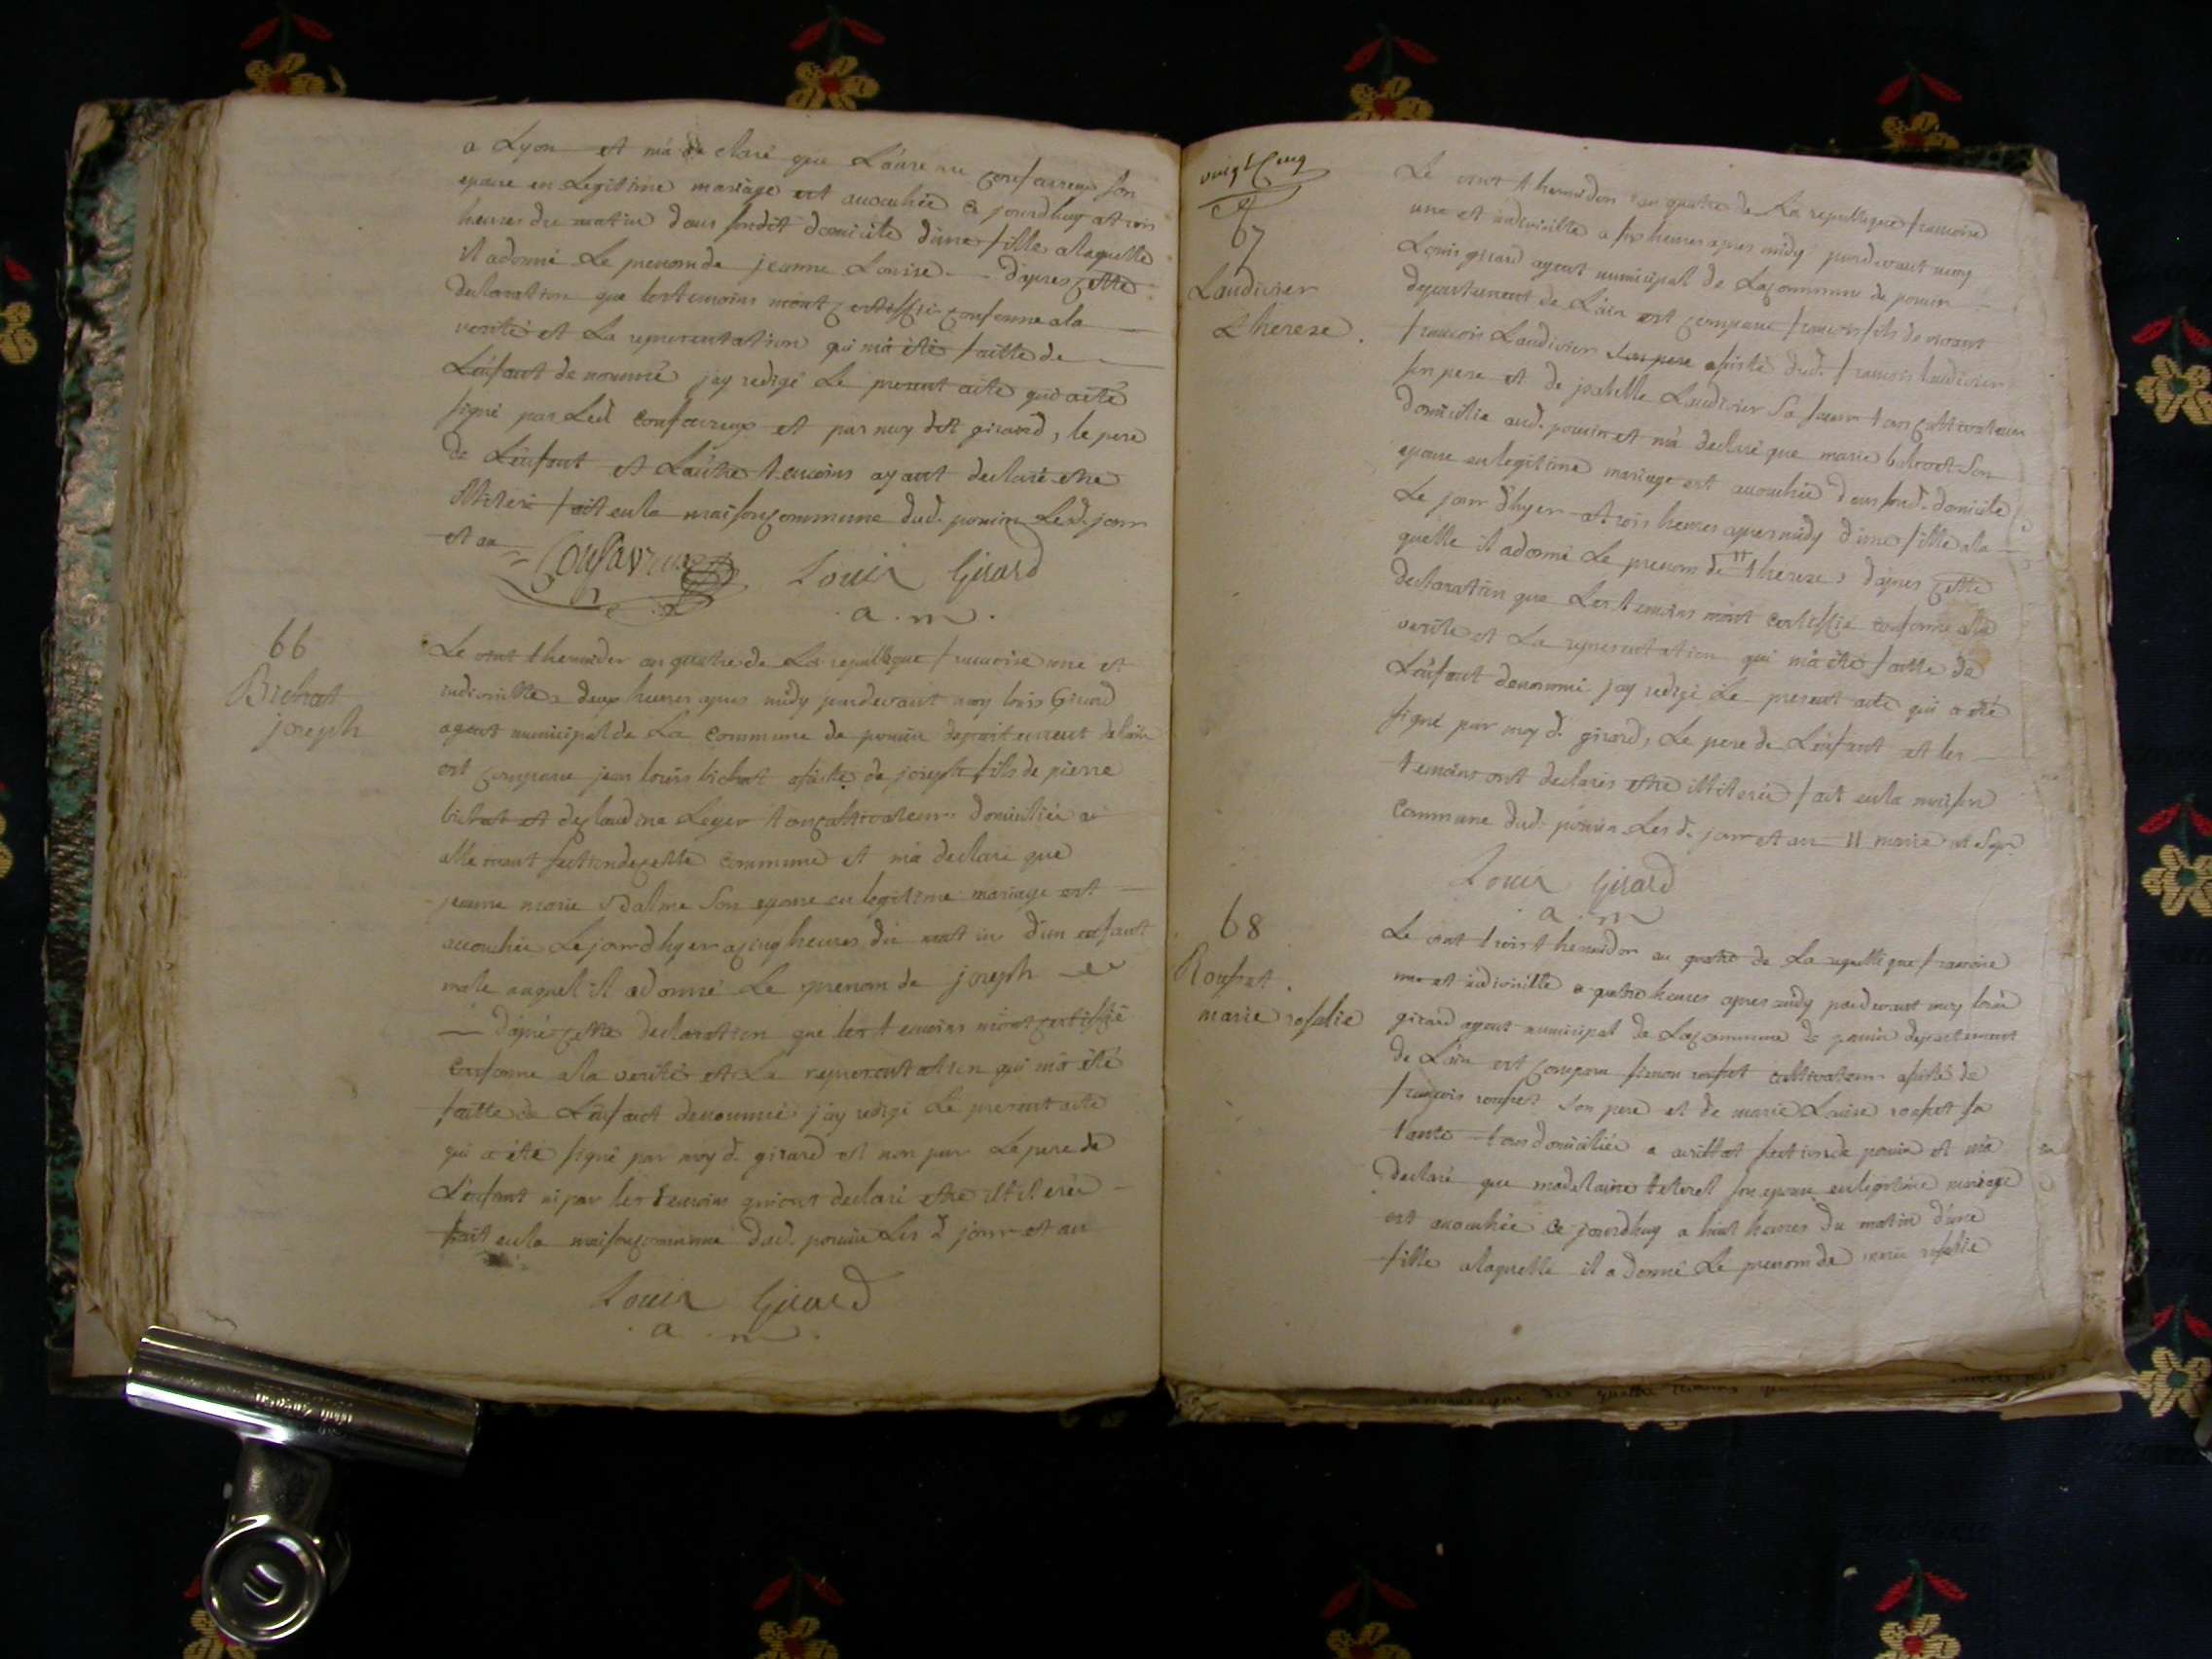 a Lyon et m'a de claré que Laure ne Confavreux son
epouse en Legitime mariage est accouchée ce jourdhuy atrois
heures du matin dans sondit domicile d'une fille alaquelle
il adonné Le prenom de jeanne Louise - d'apres cette
declaration que lestemoins mont certiffié conforme ala
verité et La representation qui m'a été faitte de
L'enfant de nommé jay redigé Le present acte qui aété
signé par Led Confavreux et par moy dit girard, le pere
de L'enfant et L'autre temoins ayant declaré etre
illiteré fait enla maison commune dud. poncin Led. jour
et an
Confavreux Louis Girard
a . m .
66
Bichat
joseph
Le vint thermidor an quatre de La republique francoise une et
indivisible a deux heures apres midy pardevant moy louis Girard
agent municipal de La Commune de poncin departement de lain
est comparu jean louis bichat assisté de joseph fils de pierre
bichat et de claudine Leger tous cultivateurs domiciliés a
allement section de cette commune et m'a declaré que
jeanne marie Dalme son epouse en legitime mariage est
accouchée Le jourdhyer acinq heures du matin d'un enfant
male auquel il adonné Le prenom de joseph
d'apré cette declaration que les temoins mont certiffié
conforme ala verité et La representation qui m'a été
faitte de L'enfant denommé j'ay redigé Le present acte
qui a été signé par moy d. girard et non par Le pere de
L'enfant ni par les temoins qui ont declaré etre illiterés
fait enla maison commune dud. poncin Les d. jour et an
Louis Girard
a . m .
vingt Cinq
67
Laudivier
therese .
Le vint thermidor an quatre de La republique francoise
une et indivisible a six heures apres midy pardevant moy
Louis girard agent municipal de La commune de poncin
departement de L'ain est comparu francois fils de vivant
francois Laudivier son pere assisté dud. francois laudivier
son pere et de isabelle Laudivier sa soeur tous cultivateurs
domicilié aud. poncin et m'a declaré que marie son
epouse en legitime mariage est accouchée dans sond. domicile
Le jour d'hyer atrois heures apres midy d'une fille ala
quelle il adonné Le prenom de 11 therese, d'apres cette
declaration que Les temoins mont certiffié conforme ala
verité et La representation qui m'a été faitte de
L'enfant denommé jay redigé Le present acte qui a été
signé par moy d. girard, Le pere de L'enfant et les
temoins ont declarés etre illiterés fait enla maison
Commune dud. poncin Les d. jour et an 11 marie
Louis Girard
a . m
68
Roufset .
marie rosalie
Le vint trois thermidor an quatre de La republique francoise
une et indivisible a quatre heures apres midy pardevant moy louis
girard agent municipal de La commune de poncin departement
de L'ain est comparu simon roufset cultivateur assisté de
francois roufset son pere et de marie Louise roufset sa
tante tous domiciliés a section de poncin et m'a
declaré que madelaine son epouse en legitime mariage
est accouchée ce jourdhuy a huit heures du matin d'une
fille alaquelle il a donné Le prenom de marie rosalie